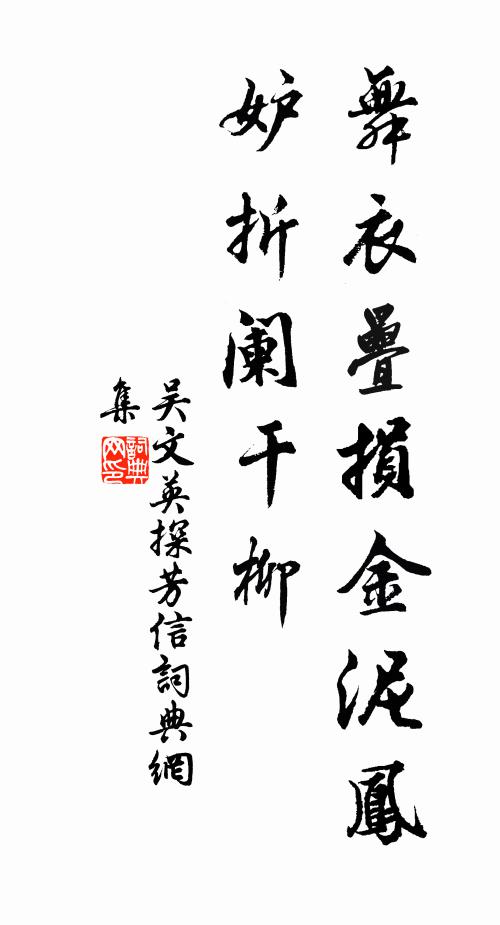 舞衣疊損金泥鳳
妒折阑干柳
吴文英探芳信詞典網
集
詞典
网印